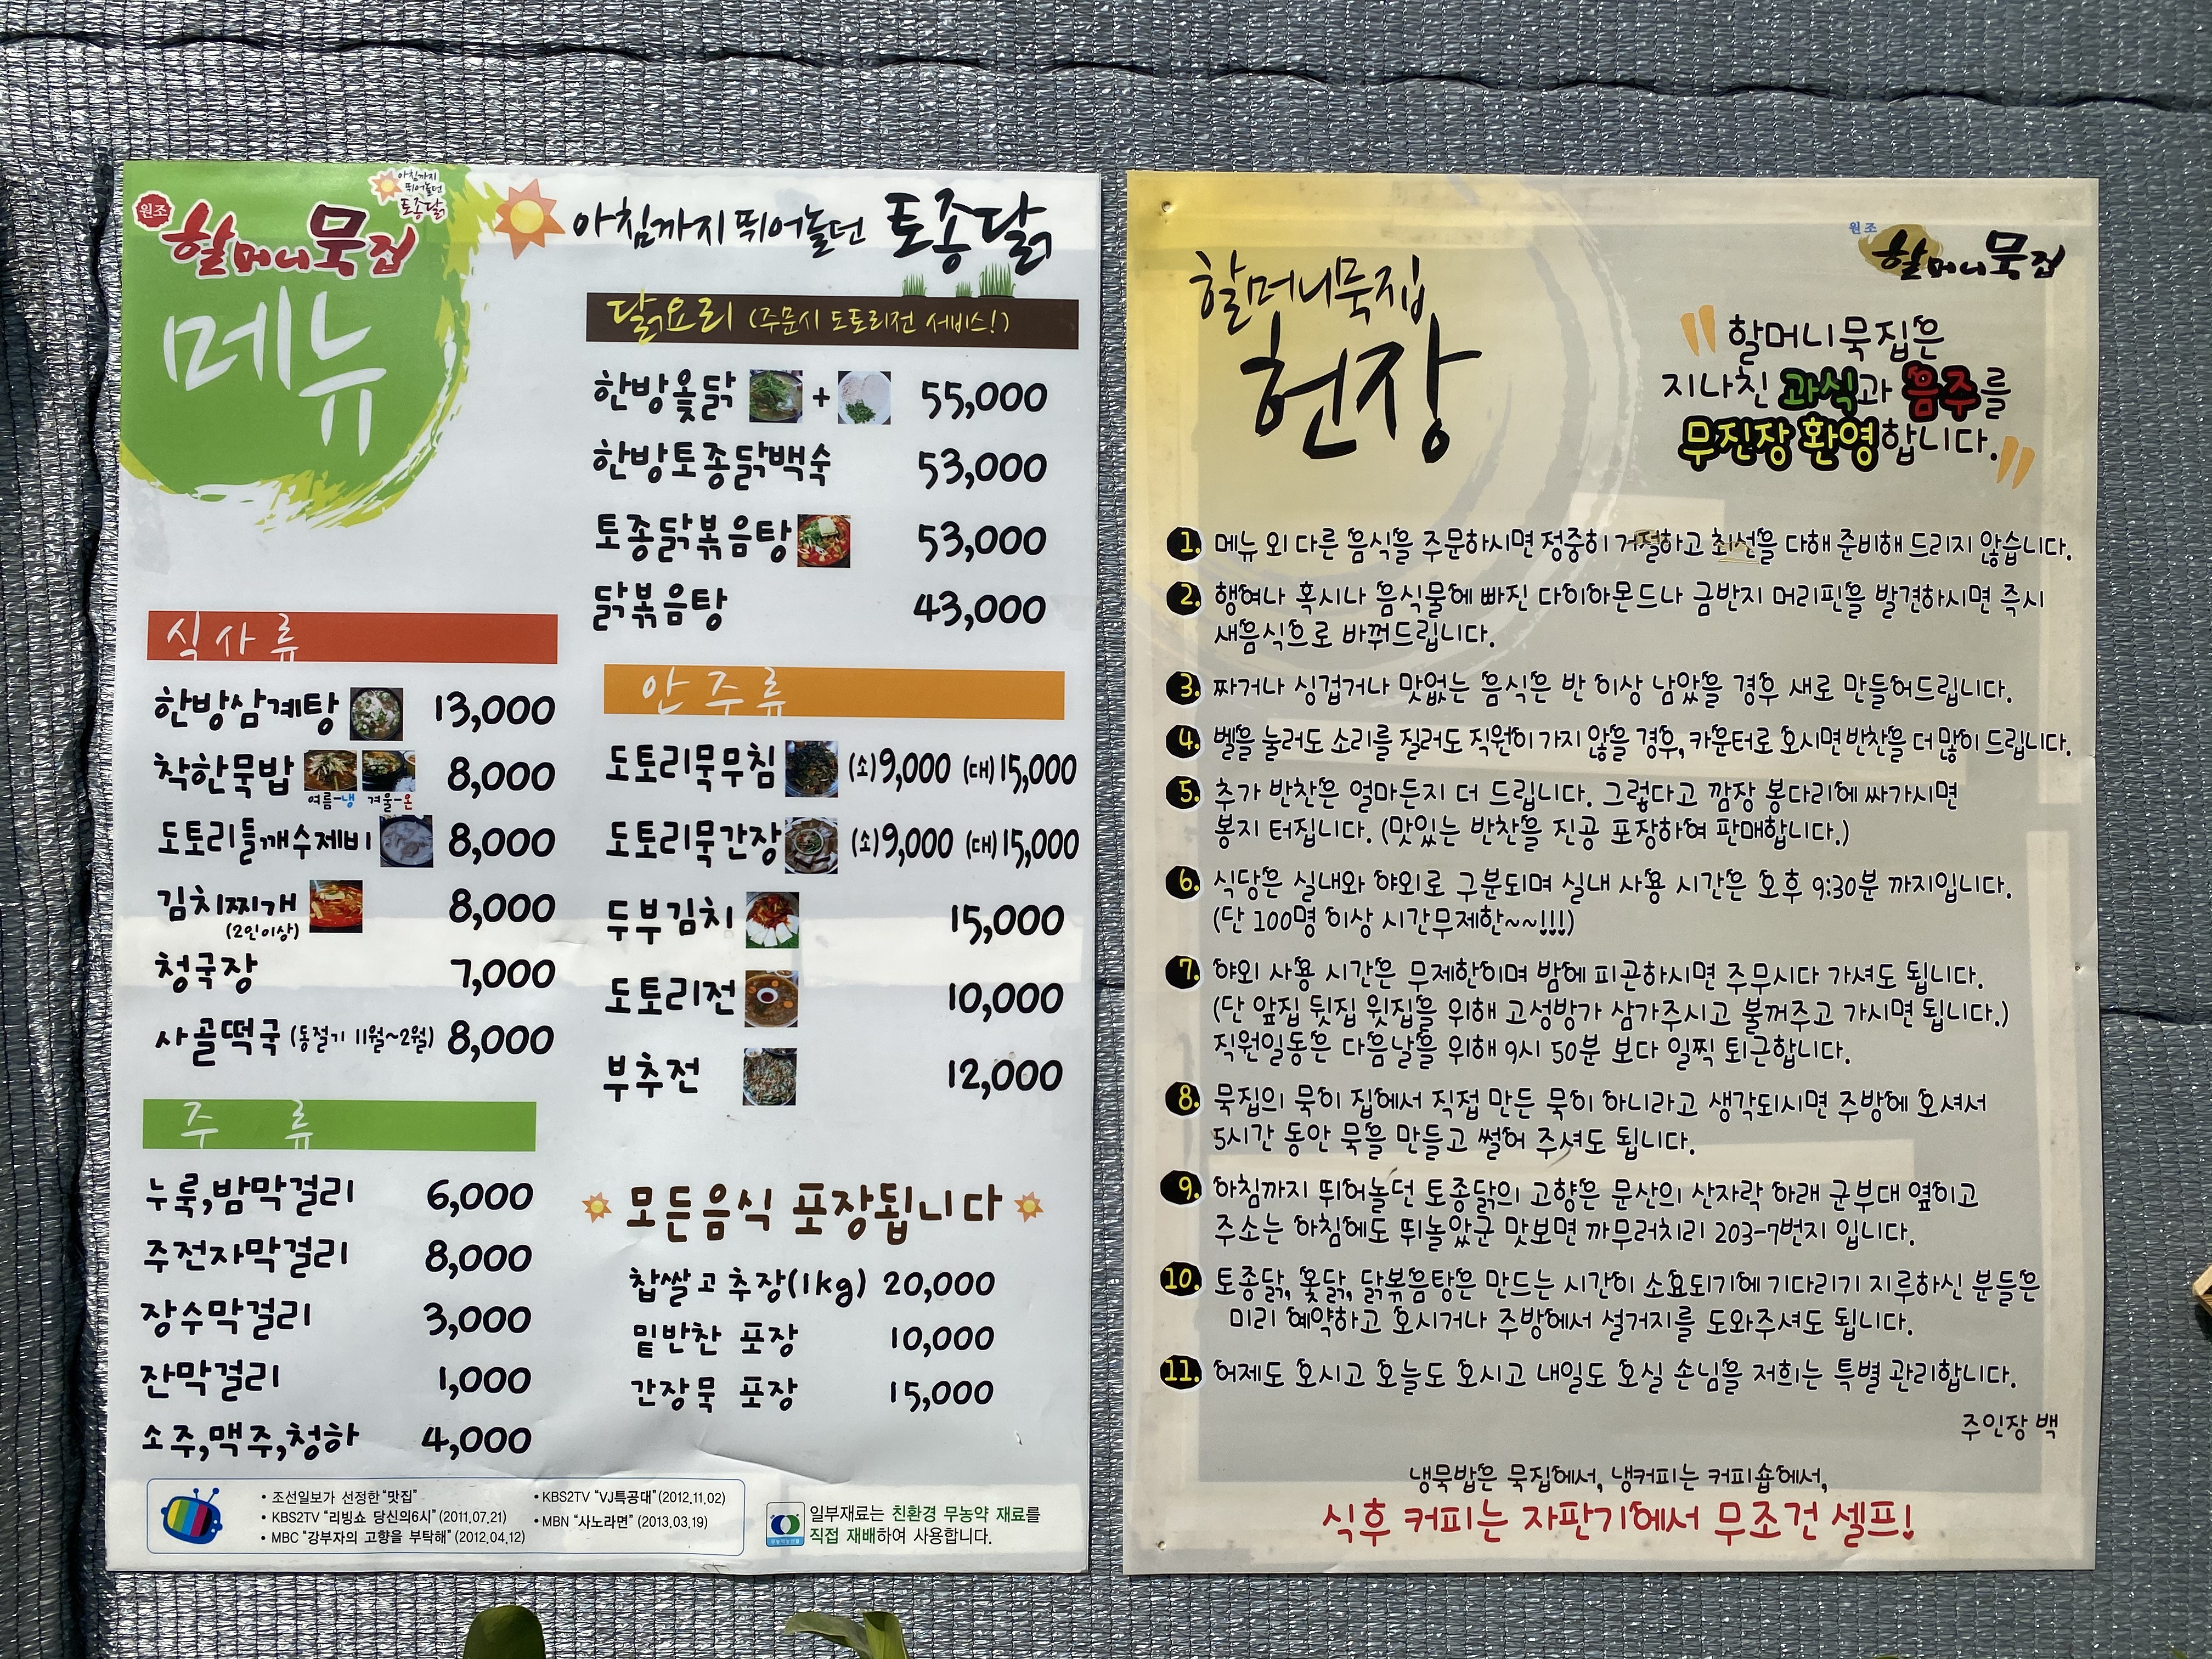 원조
할머니묵집
아침까지
뛰어놀던
토종닭
메뉴
아침까지 뛰어놀던 토종닭
닭요리 (주문시 도토리전 서비스!)
한방옻닭 + 55,000
한방토종닭백숙 53,000
토종닭볶음탕 53,000
닭볶음탕 43,000
식사류
한방삼계탕 13,000
착한묵밥 8,000
여름-냉 겨울-온
도토리들깨수제비 8,000
김치찌개 8,000
(2인이상)
청국장 7,000
사골떡국 (동절기 11월~2월) 8,000
안주류
도토리묵무침 (소)9,000 (대)15,000
도토리묵간장 (소)9,000 (대)15,000
두부김치 15,000
도토리전 10,000
부추전 12,000
주 류
누룩,밤막걸리 6,000
주전자막걸리 8,000
장수막걸리 3,000
잔막걸리 1,000
소주,맥주,청하 4,000
모든음식 포장됩니다
찹쌀고추장(1kg) 20,000
밑반찬 포장 10,000
간장묵 포장 15,000
• 조선일보가 선정한 "맛집"
• KBS2TV "리빙쇼 당신의6시" (2011.07.21)
• MBC "강부자의 고향을 부탁해" (2012.04.12)
• KBS2TV "VJ특공대" (2012.11.02)
• MBN "사노라면" (2013.03.19)
일부재료는 친환경 무농약 재료를
직접 재배하여 사용합니다.
할머니묵집
헌장
원조
할머니묵집
"할머니묵집은
지나친 과식과 음주를
무진장 환영합니다."
1. 메뉴 외 다른 음식을 주문하시면 정중히 거절하고 최선을 다해 준비해 드리지 않습니다.
2. 행여나 혹시나 음식물에 빠진 다이아몬드나 금반지 머리핀을 발견하시면 즉시
새음식으로 바꿔드립니다.
3. 짜거나 싱겁거나 맛없는 음식은 반 이상 남았을 경우 새로 만들어드립니다.
4. 벨을 눌러도 소리를 질러도 직원이 가지 않을 경우, 카운터로 오시면 반찬을 더 많이 드립니다.
5. 추가 반찬은 얼마든지 더 드립니다. 그렇다고 깜장 봉다리에 싸가시면
봉지 터집니다. (맛있는 반찬을 진공 포장하여 판매합니다.)
6. 식당은 실내와 야외로 구분되며 실내 사용 시간은 오후 9:30분 까지입니다.
(단 100명 이상 시간무제한~~!!!)
7. 야외 사용 시간은 무제한이며 밤에 피곤하시면 주무시다 가셔도 됩니다.
(단 앞집 뒷집 윗집을 위해 고성방가 삼가주시고 불꺼주고 가시면 됩니다.)
직원일동은 다음날을 위해 9시 50분 보다 일찍 퇴근합니다.
8. 묵집의 묵이 집에서 직접 만든 묵이 아니라고 생각되시면 주방에 오셔서
5시간 동안 묵을 만들고 썰어 주셔도 됩니다.
9. 아침까지 뛰어놀던 토종닭의 고향은 문산의 산자락 아래 군부대 옆이고
주소는 아침에도 뛰놀았군 맛보면 까무러치리 203-7번지 입니다.
10. 토종닭, 옻닭, 닭볶음탕은 만드는 시간이 소요되기에 기다리기 지루하신 분들은
미리 예약하고 오시거나 주방에서 설거지를 도와주셔도 됩니다.
11. 어제도 오시고 오늘도 오시고 내일도 오실 손님을 저희는 특별 관리합니다.
주인장 백
냉묵밥은 묵집에서, 냉커피는 커피숍에서,
식후 커피는 자판기에서 무조건 셀프!